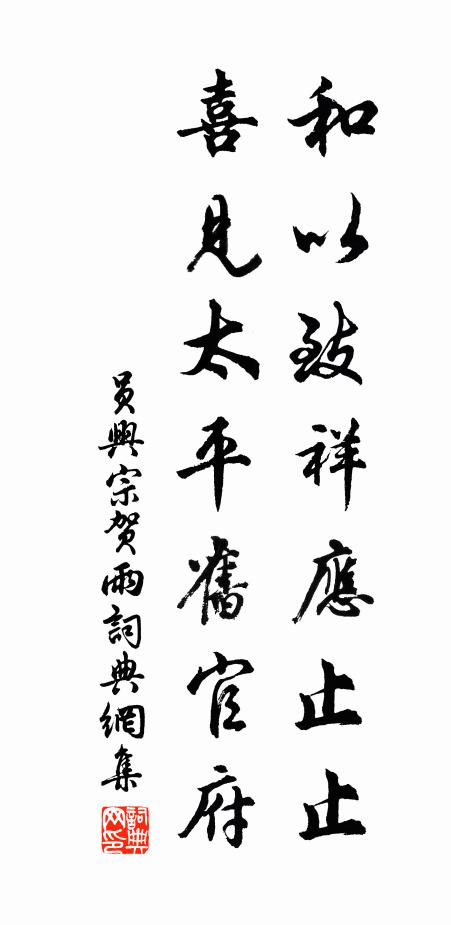 和以致祥應止止
喜見太平舊官府
员興宗贺雨詞典網集
詞典網印